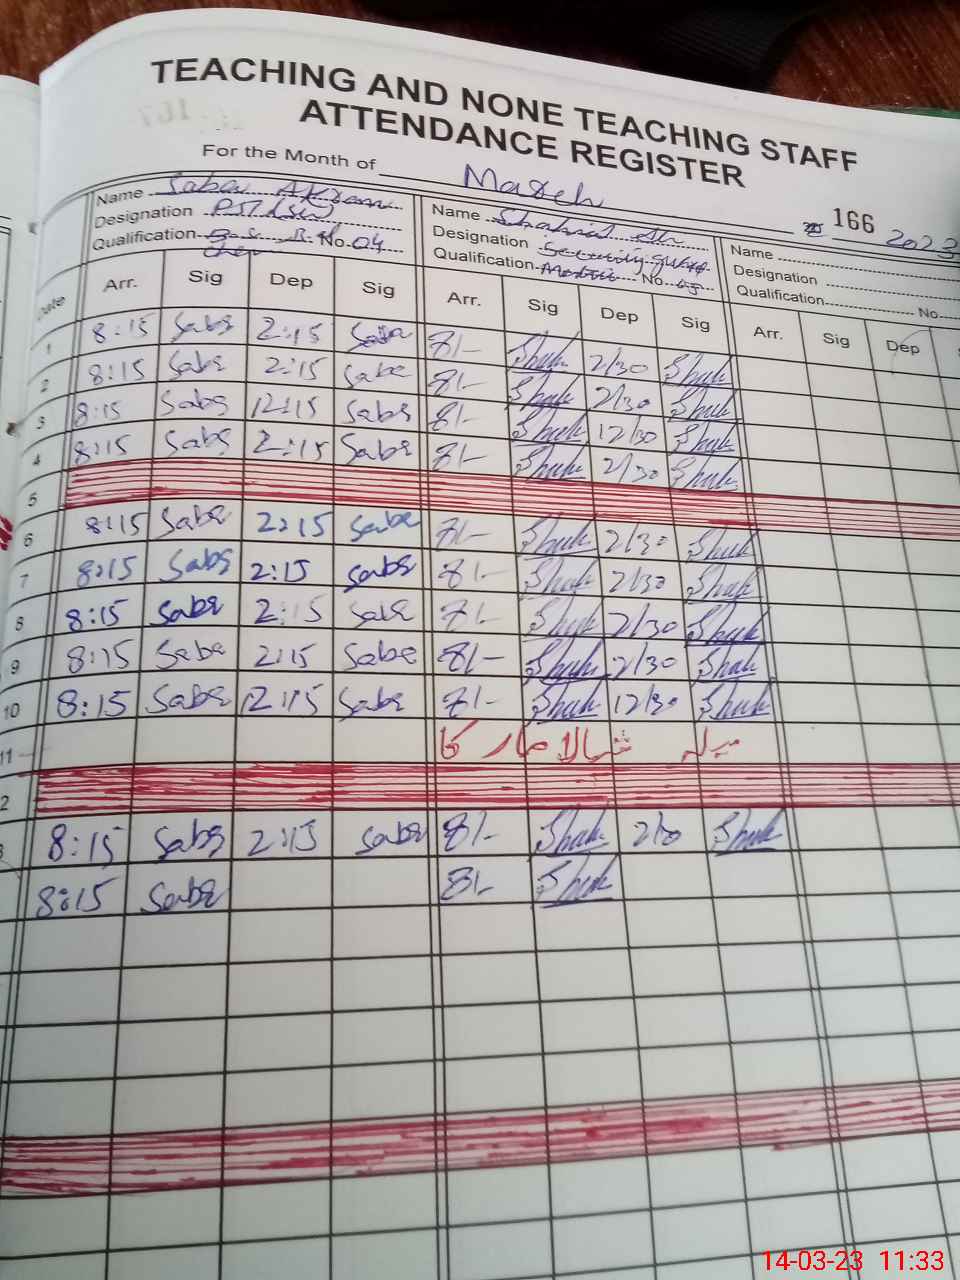 TEACHING AND NONE TEACHING STAFF
ATTENDANCE REGISTER
For the Month of March 166 2023
Name Saber Akram Name Shahid Ali Name
Designation PST (SW) Designation Security guard Designation
Qualification B.Sc. B.Ed No. 04 Qualification Matric No. 05 Qualification No.
Date Arr. Sig Dep Sig Arr. Sig Dep Sig Arr. Sig Dep
1 8:15 Sabe 2:15 Sabe 8/- Shah 2/30 Shah
2 8:15 Sabe 2:15 Sabe 8/- Shah 2/30 Shah
3 8:15 Sabe 12:15 Sabe 8/- Shah 12/30 Shah
4 8:15 Sabe 2:15 Sabe 8/- Shah 2/30 Shah
5
6 8:15 Sabe 2:15 Sabe 8/- Shah 2/30 Shah
7 8:15 Sabe 2:15 Sabe 8/- Shah 2/30 Shah
8 8:15 Sabe 2:15 Sabe 8/- Shah 2/30 Shah
9 8:15 Sabe 2:15 Sabe 8/- Shah 2/30 Shah
10 8:15 Sabe 12:15 Sabe 8/- Shah 12/30 Shah
11 میلہ شالامار کا
2
8:15 Sabe 2:15 Sabe 8/- Shah Shah
8:15 Sabe 8/- Shah
14-03-23 11:33